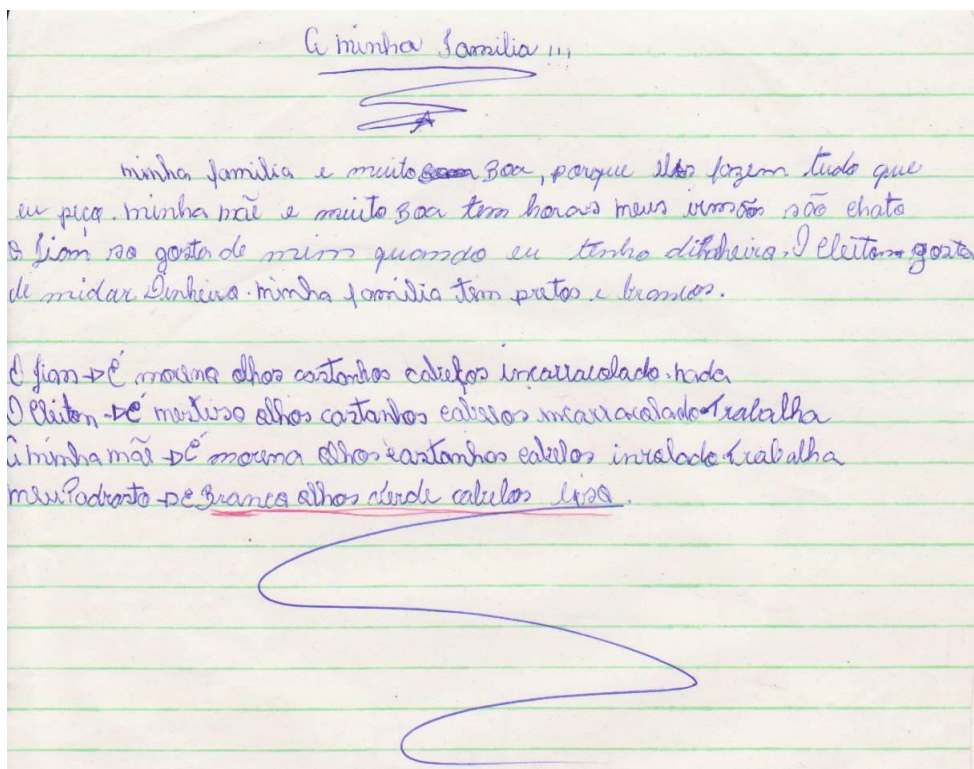 A minha familia !!!
minha familia e muito Boa, porque eles fazem tudo que
eu peço. minha mãe e muito Boa tem horas meus irmãos são chato
O Jian so gosta de mim quando eu tenho dihheiro. O Cleiton gosta
de midar Dinheiro. minha familia tem pretos e brancos.
O Jian → É moreno olhos castanhos cabelos incarracolado. nada
O Cleiton → É mestiso olhos castanhos cabelos incarracolado Trabalha
A minha mãe → É morena olhos castanhos cabelos inrolado. trabalha
meu Padrasto → É Branco olhos verde cabelos liso.